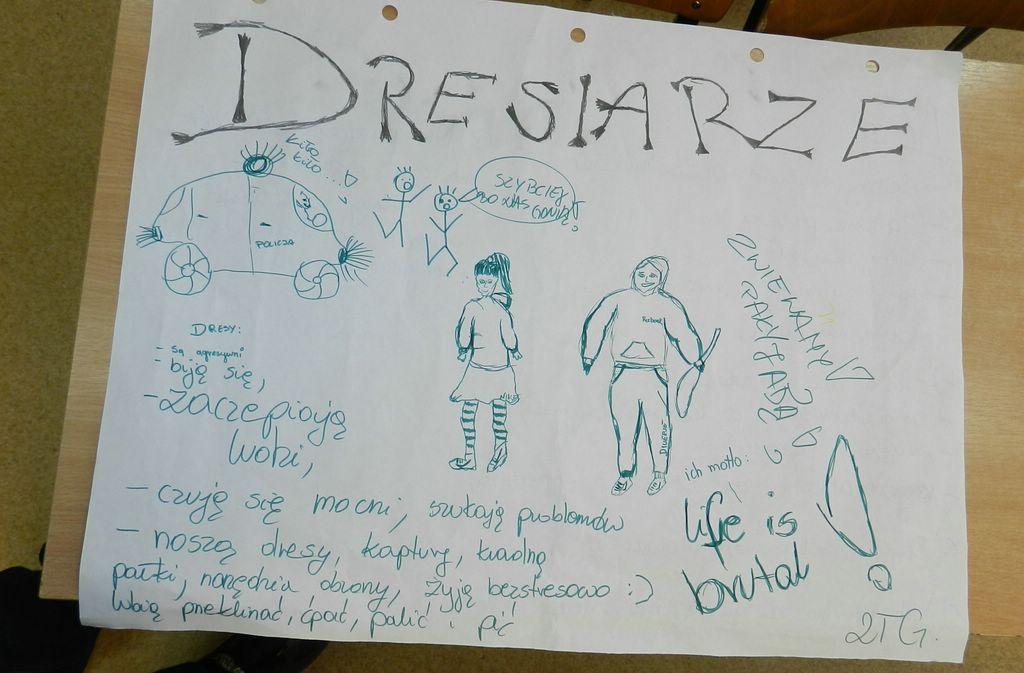 DRESIARZE
POLICJA
SZYBCIEJ
BO NAS GONIĄ!
ZWIEWAMY!
DRESY:
- są agresywni
- biją się,
- zaczepiają
ludzi,
- czują się mocni, szukają problemów
- noszą dresy, kaptury, kradną
pałki, narzędnia obrony, żyją bezstresowo :)
lubią przeklinać, ćpać, palić i pić
ich motto:
life is
brutal
!
2TG.